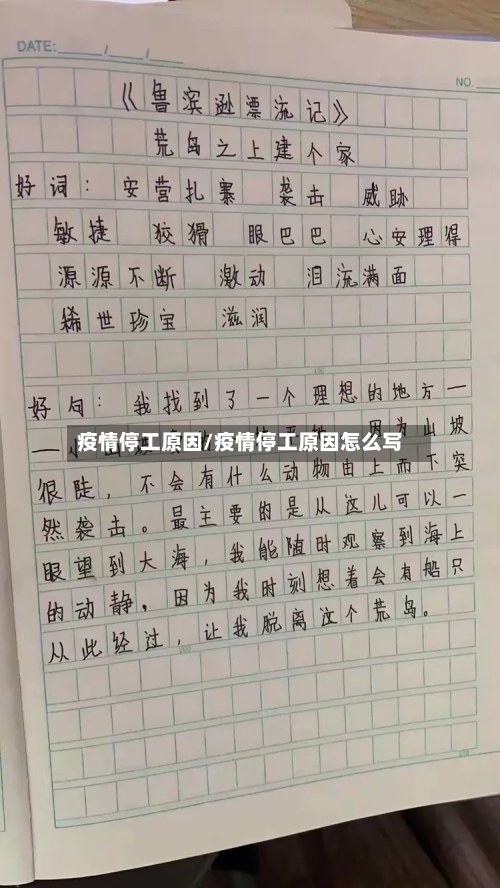 DATE: / /
NO.
《鲁滨逊漂流记》
荒岛之上建个家
好词：安营扎寨 袭击 威胁
敏捷 狡猾 眼巴巴 心安理得
源源不断 激动 泪流满面
稀世珍宝 滋润
100
好句：我找到了一个理想的地方—
疫情停工原因/疫情停工原因怎么写
—小 因为山坡
很陡，不会有什么动物由上而下突
然袭击。最主要的是从这儿可以一
眼望到大海，我能随时观察到海上
的动静，因为我时刻想着会有船只
从此经过，让我脱离这个荒岛。
200